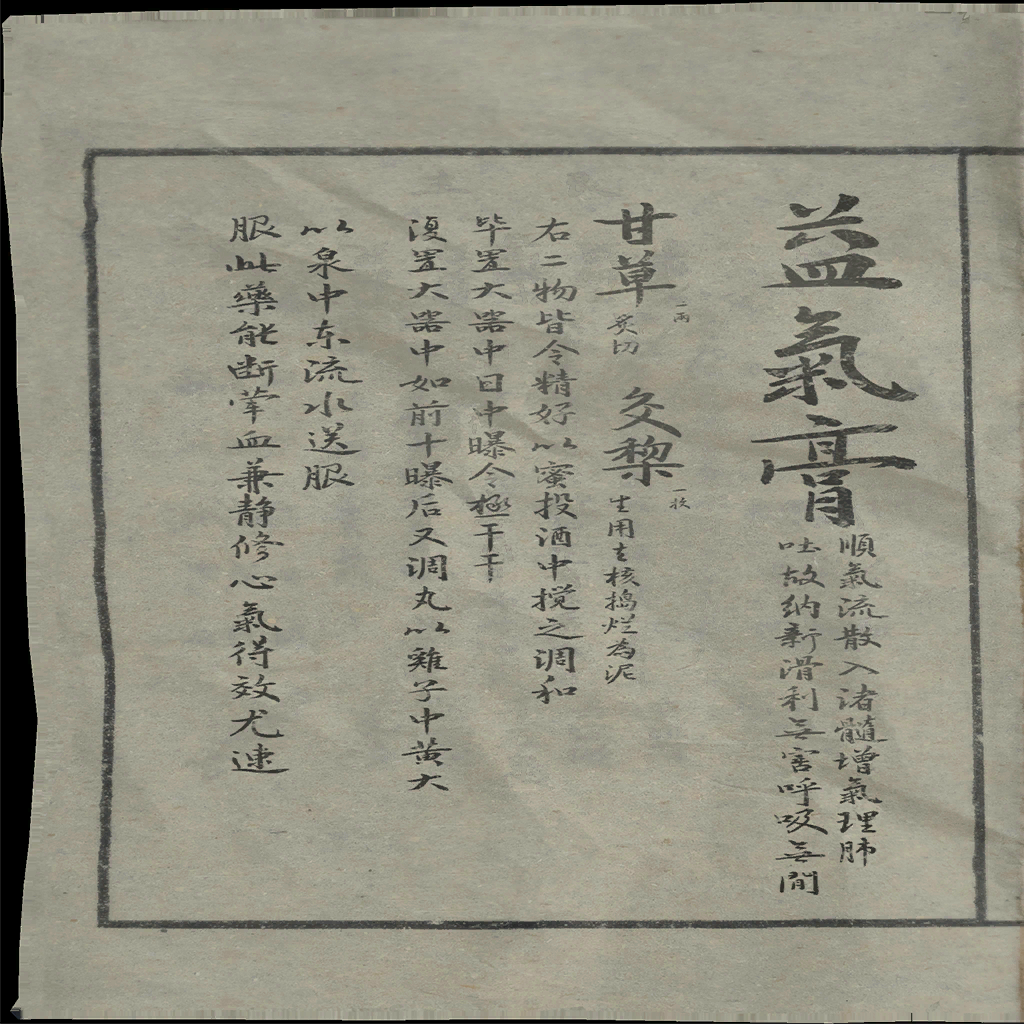 益氣膏
順氣流散入诸髓增氣理肺
吐故纳新滑利無害呼吸無間
甘草 一両 炙切 交梨 一枚 生用去核搗烂為泥
右二物皆令精好以蜜投酒中搅之调和
毕置大器中日中曝令極干干
復置大器中如前十曝后又调丸以雞子中黄大
以泉中东流水送服
服此藥能断荤血兼静修心氣得效尤速